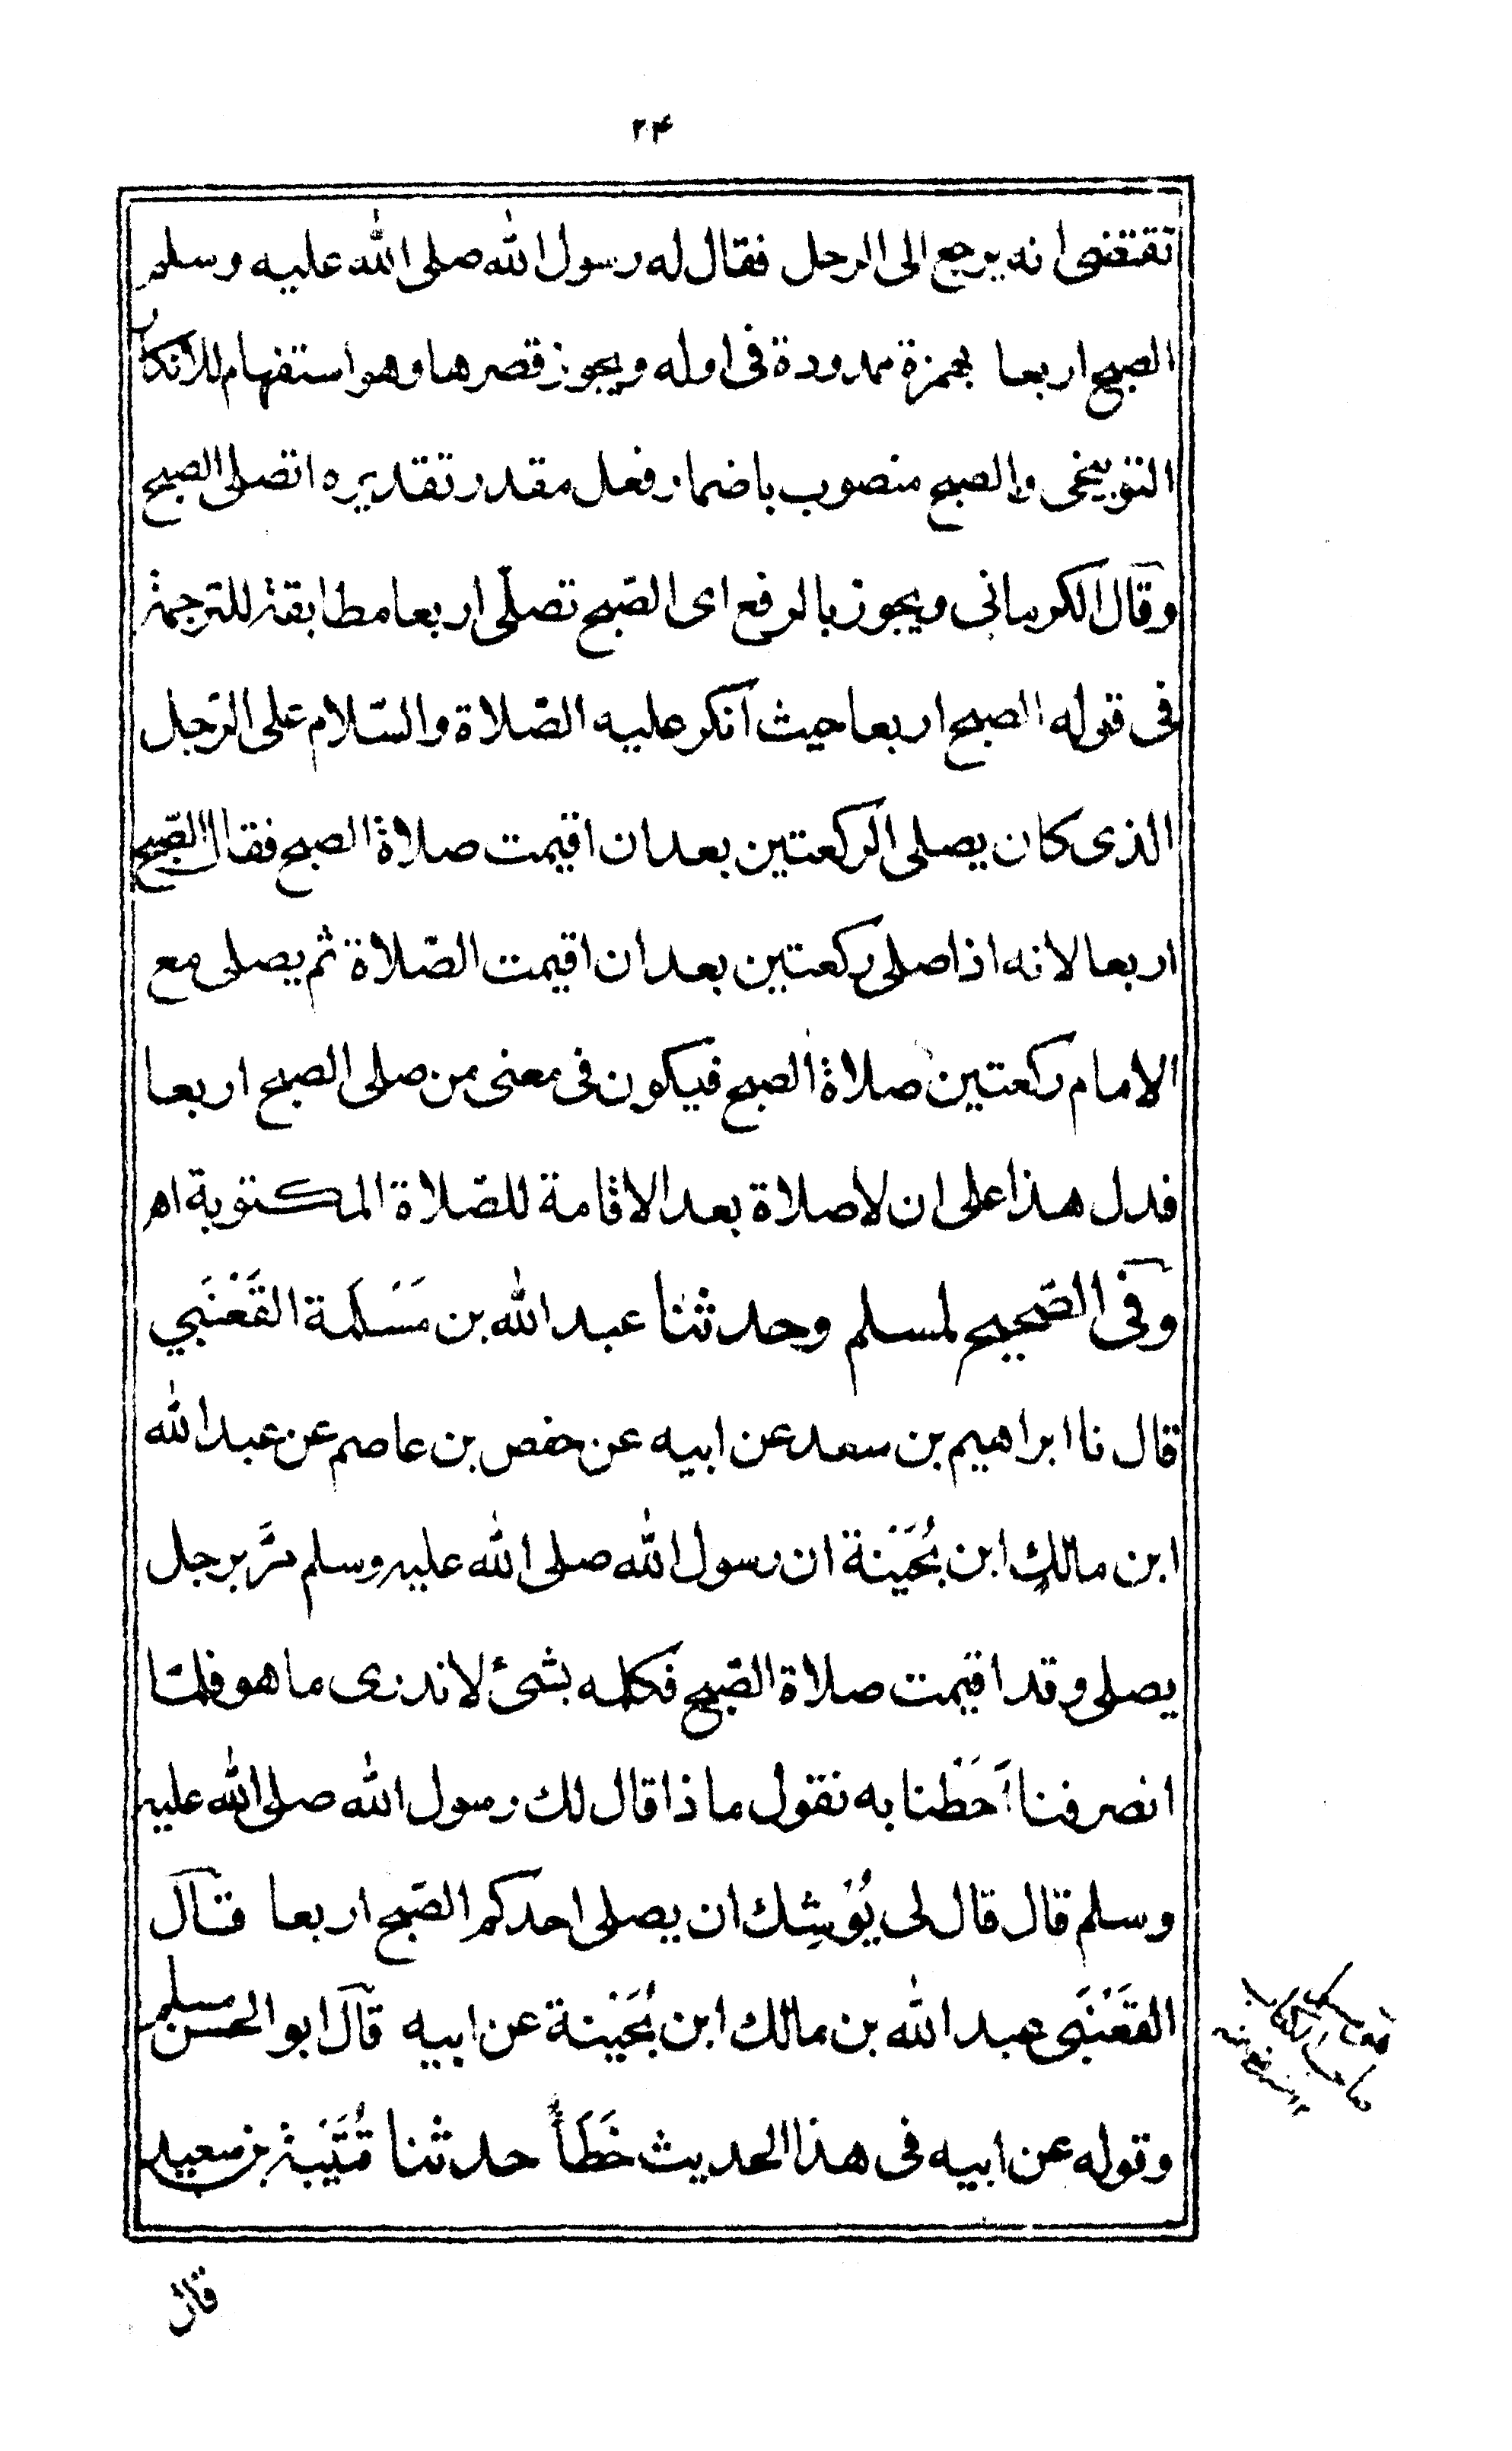 ۲۴
تقتضى انه يرجع الى الرجل فقال له رسول الله صلى الله عليه وسلم
الصبح اربعا بهمزة ممدودة فى اوله ويجوز قصرها وهو استفهام للانكار
التوبيخى والصبح منصوب باضمار فعل مقدر تقديره اتصلى الصبح
وقال الكرمانى ويجوز بالرفع اى الصّبح تصلّى اربعا مطابقة للترجمة
فى قوله الصبح اربعا حيث انكر عليه الصّلاة والسّلام على الرّجل
الذى كان يصلى الركعتين بعد ان اقيمت صلاة الصبح فقال الصّبح
اربعا لانه اذا صلى ركعتين بعد ان اقيمت الصّلاة ثم يصلى مع
الامام ركعتين صلاة الصبح فيكون فى معنى من صلى الصبح اربعا
فدل هذا على ان لا صلاة بعد الاقامة للصّلاة المكتوبة اه
وفى الصّحيح لمسلم وحدثنا عبد الله بن مَسْلَمة القَعْنَبي
قال نا ابراهيم بن سعد عن ابيه عن حفص بن عاصم عن عبد الله
ابن مالكٍ ابن بُحَيْنة ان رسول الله صلى الله عليه وسلم مَرَّ برجل
يصلى وقد اقيمت صلاة الصّبح فكلمه بشئ لا ندرى ما هو فلمّا
انصرفنا اَحَطْنا به نقول ماذا قال لك رسول الله صلى الله عليه
وسلم قال قال لى يُوْشِك ان يصلى احدكم الصّبح اربعا قال
القَعْنَبى عبد الله بن مالك ابن بُحَيْنة عن ابيه قال ابو الحسن مسلم
وقوله عن ابيه فى هذا الحديث خَطَأٌ حدثنا قُتَيْبة بن سعيد
قال